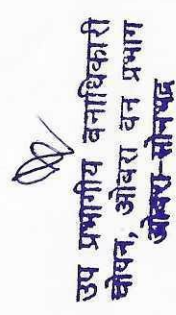 उप प्रभागीय वनाधिकारी
ओबरा वन प्रभाग
ओबरा-सोनभद्र